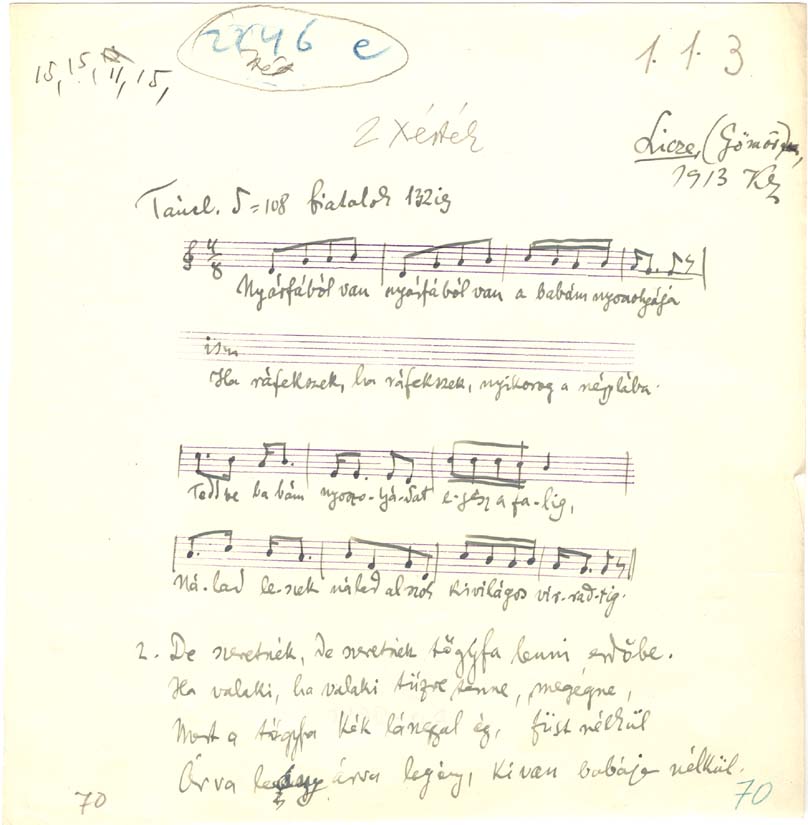 2246 e
1. 1. 3
15, 15, 11, 15,
2 Xérték
Licze, (Gömör),
1913
Táncl. ♪=108 fiatalok 132ig
4/8
Nyárfából van nyárfából van a babám nyoszolyája
ism
Ha ráfekszek, ha ráfekszek, nyikorog a négylába.
Tedd be babám nyoszo-lyá-dat e-gész a fa-lig,
Ná-lad le-szek nálad alszok kivilágos vir-rad-tig.
2. De szeretnék, de szeretnék tögyfa lenni erdőbe.
Ha valaki, ha valaki tűzre tenne, megégne,
Mert a tögyfa kék lánggal ég, füst nélkül
Árva legény árva legény, ki van babája nélkül.
70
70